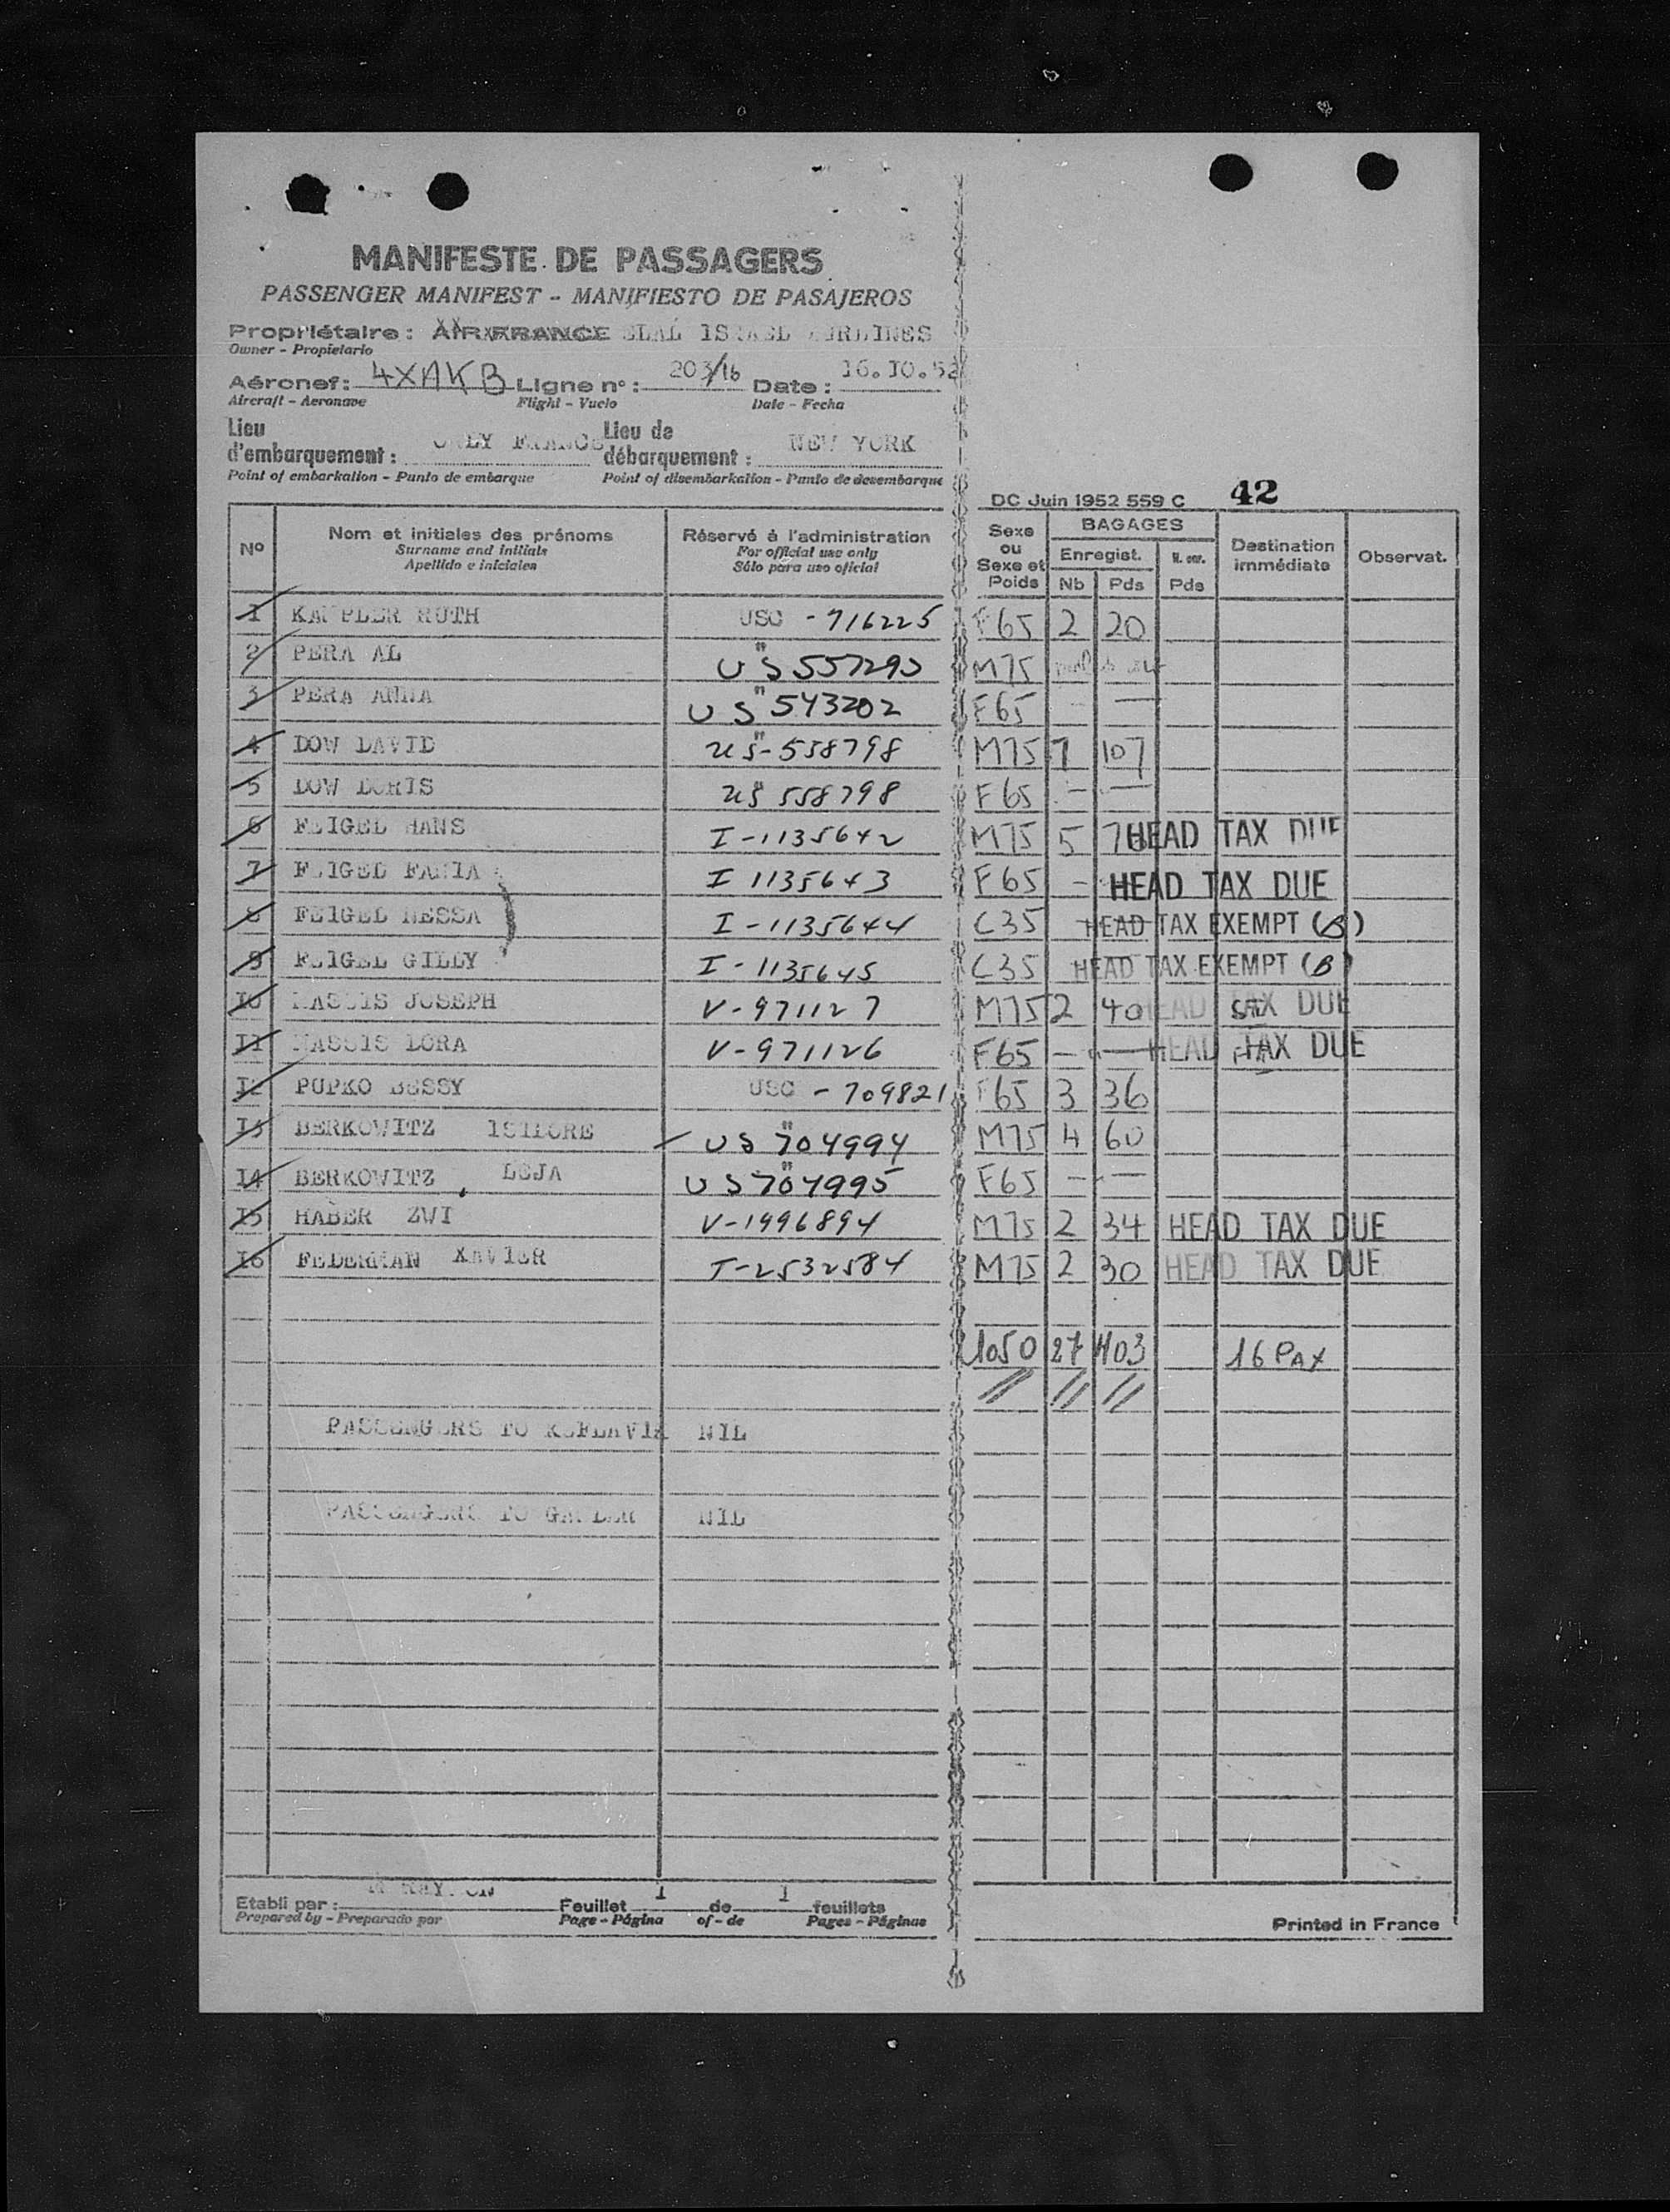 MANIFESTE DE PASSAGERS
PASSENGER MANIFEST - MANIFIESTO DE PASAJEROS
Propriétaire : AIR FRANCE ELAL ISRAEL AIRLINES
Owner - Propietario
Aéronef : 4XAKB Ligne n° : 203/16 Date : 16.10.52
Aircraft - Aeronave Flight - Vuelo Date - Fecha
Lieu d'embarquement : ORLY FRANCE Lieu de débarquement : NEW YORK
Point of embarkation - Punto de embarque Point of disembarkation - Punto de desembarque
DC Juin 1952 559 C 42
N° Nom et initiales des prénoms Réservé à l'administration Sexe ou Sexe et Poids BAGAGES Destination immédiate Observat.
Surname and initials For official use only Enregist. N. enr.
Apellido e iniciales Sólo para uso oficial Nb Pds Pds
1 KAMPLER RUTH USC - 716225 F65 2 20
2 PERA AL " US 557293 M75
3 PERA ANNA " US 543202 F65 - —
4 DOW DAVID " US-558798 M75 7 107
5 DOW DORIS " US 558798 F65 - —
6 FEIGEL HANS I-1135642 M75 5 HEAD TAX DUE
7 FEIGEL FANIA I 1135643 F65 - HEAD TAX DUE
8 FEIGEL NESSA I-1135644 C35 HEAD TAX EXEMPT (B)
9 FEIGEL GILLY I-1135645 C35 HEAD TAX EXEMPT (B)
10 NASSIS JOSEPH V-971127 M75 2 40 HEAD TAX DUE
11 NASSIS LORA V-971126 F65 - — HEAD TAX DUE
12 PUPKO BESSY USC - 709821 F65 3 36
13 BERKOWITZ ISIDORE " US 704994 M75 4 60
14 BERKOWITZ LUJA " US 704995 F65 - —
15 HABER ZWI V-1996894 M75 2 34 HEAD TAX DUE
16 FEDERMAN XAVIER T-2532584 M75 2 30 HEAD TAX DUE
1050 27 403 16 PAX
PASSENGERS TO KEFLAVIK NIL
PASSENGERS TO GANDER NIL
Etabli par : Feuillet 1 de 1 feuillets
Prepared by - Preparado por Page - Página of - de Pages - Páginas
Printed in France